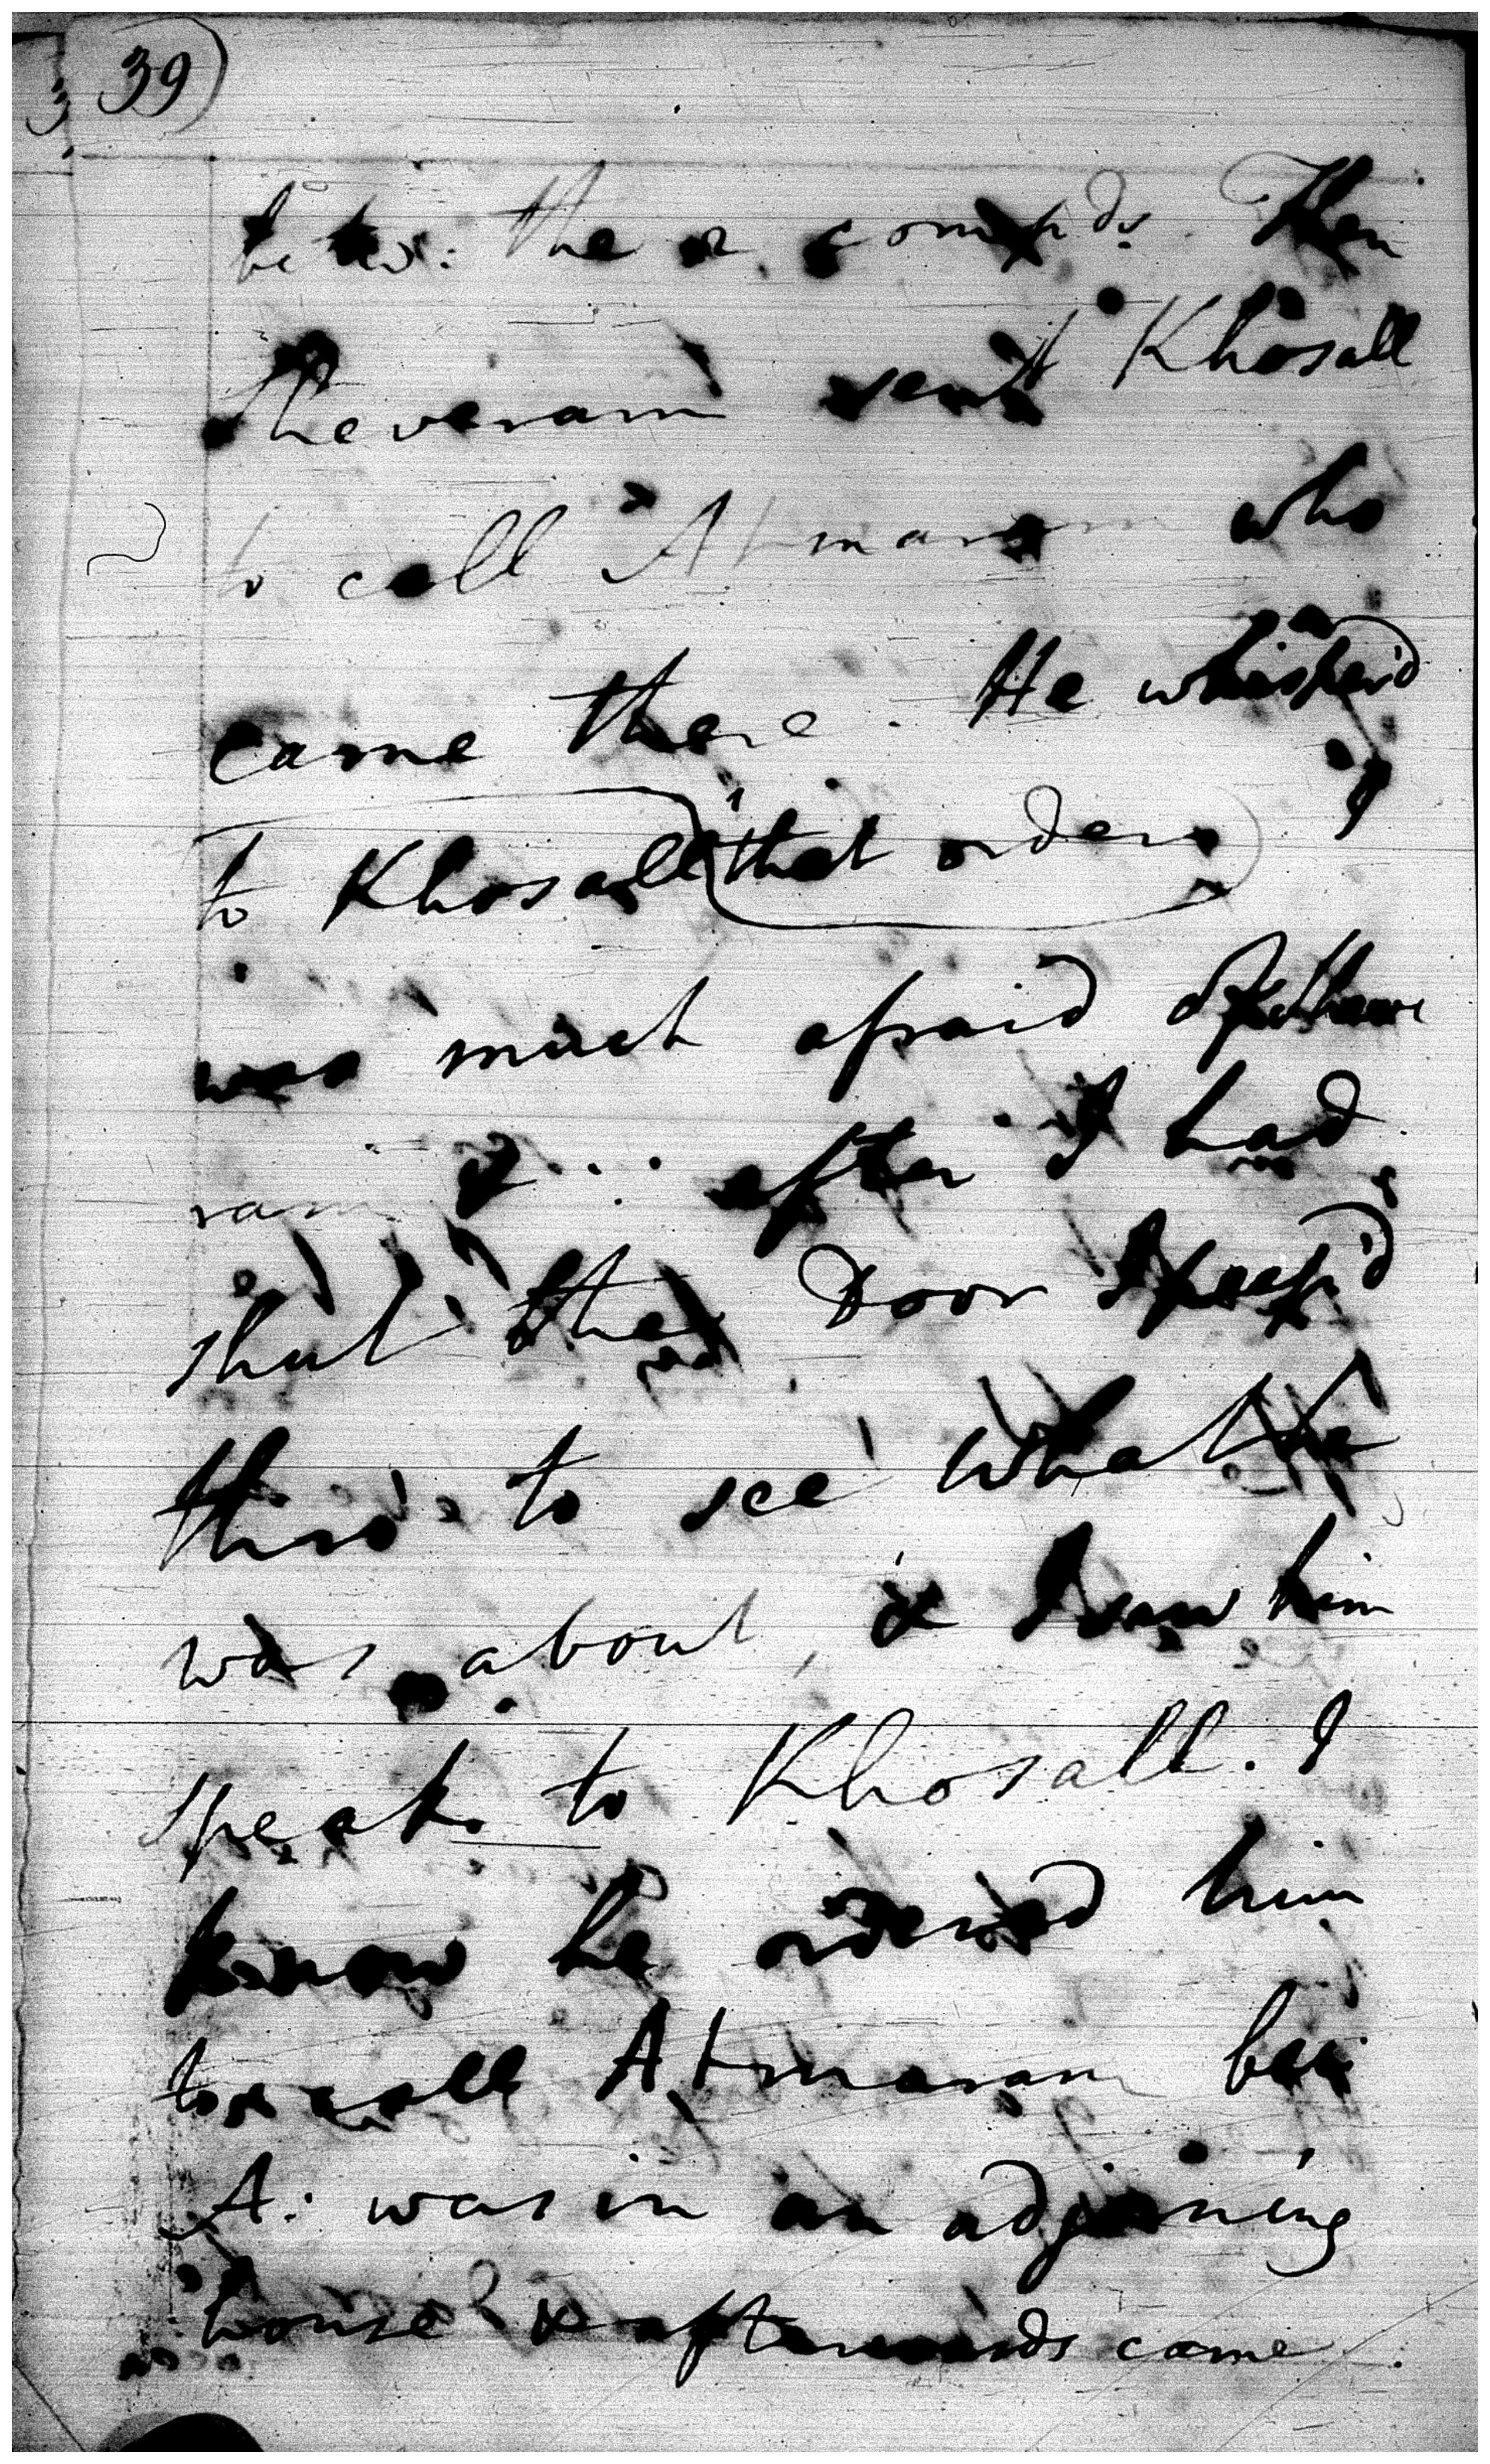 39)
betw: the 2. compds. Then
Theveram sent Khosall
to call Atmaram who
came there. He whisper'd
to Khosall that orders
was much afraid of Theve
ram &... after I had
shut the Door I peep'd
thro' to see what he
was about, & I saw him
speak to Khosall. I
know he ordered him
to call Atmaram bec:
A: was in an adjoining
house & afterwards came.